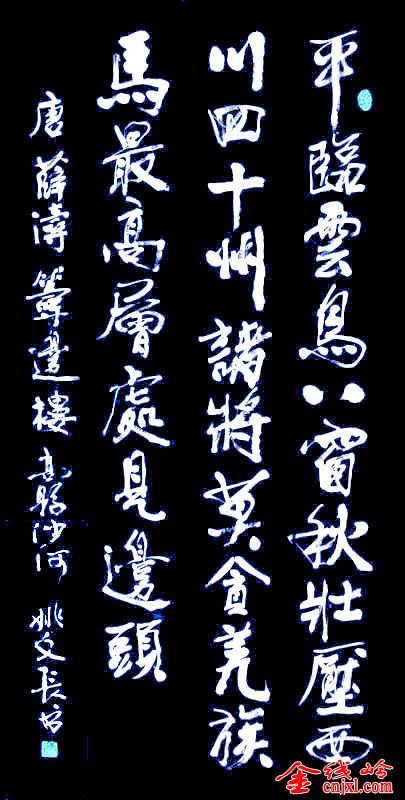 平臨雲鳥八窗秋壯壓西
川四十州諸將莫貪羌族
馬最高層處見邊頭
唐薛濤籌邊樓高縣沙河姚文長書
金线岭
cnjxl.com